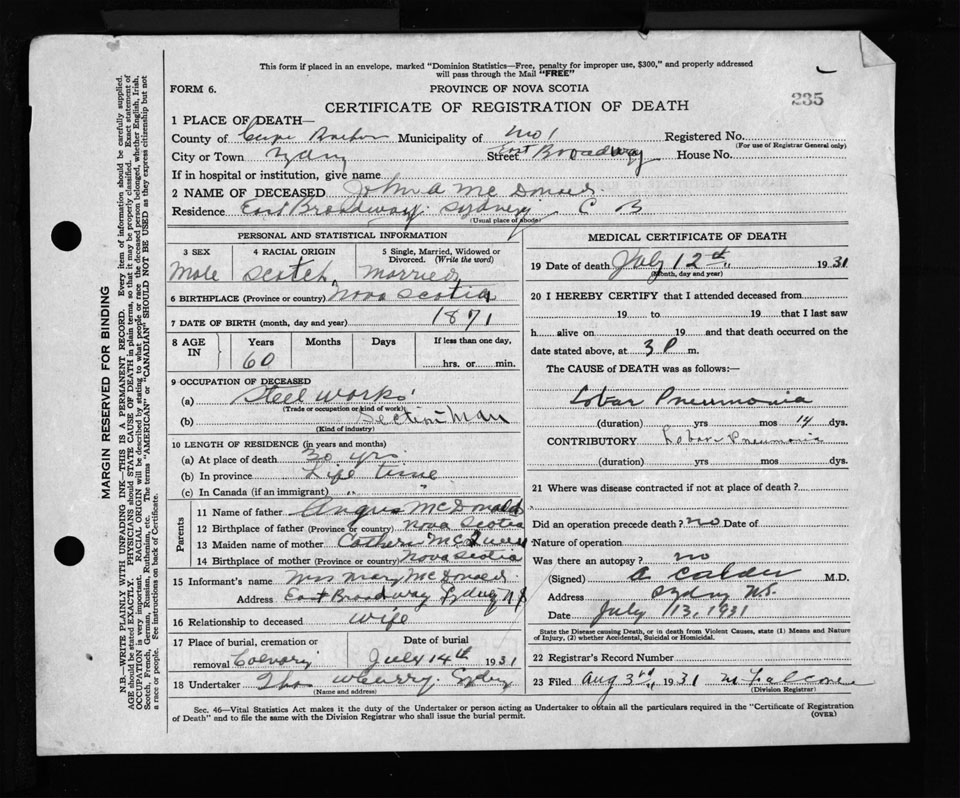 This form if placed in an envelope, marked "Dominion Statistics—Free, penalty for improper use, $300," and properly addressed
will pass through the Mail "FREE"
FORM 6.
PROVINCE OF NOVA SCOTIA
235
CERTIFICATE OF REGISTRATION OF DEATH
1 PLACE OF DEATH—
County of Cape Breton Municipality of No 1 Registered No.
(For use of Registrar General only)
City or Town Sydney Street East Broadway House No.
If in hospital or institution, give name
2 NAME OF DECEASED John A McDonald
Residence East Broadway Sydney C B
(Usual place of abode)
PERSONAL AND STATISTICAL INFORMATION
3 SEX
4 RACIAL ORIGIN
5 Single, Married, Widowed or
Divorced. (Write the word)
Male
Scotch
Married
6 BIRTHPLACE (Province or country) Nova Scotia
7 DATE OF BIRTH (month, day and year) 1871
8 AGE
IN
Years
Months
Days
If less than one day,
60
hrs. or min.
9 OCCUPATION OF DECEASED
(a) Steel works
(Trade or occupation or kind of work)
(b) Section Man
(Kind of industry)
10 LENGTH OF RESIDENCE (in years and months)
(a) At place of death 30 yrs
(b) In province Life time
(c) In Canada (if an immigrant) " "
Parents
11 Name of father Angus McDonald
12 Birthplace of father (Province or country) Nova Scotia
13 Maiden name of mother
14 Birthplace of mother (Province or country) Nova Scotia
15 Informant's name Mrs Mary McDonald
Address East Broadway Sydney N S
16 Relationship to deceased Wife
17 Place of burial, cremation or
Date of burial
removal Calvary
July 14th 1931
18 Undertaker Thos W Curry. Sydney
(Name and address)
MEDICAL CERTIFICATE OF DEATH
19 Date of death July 12th 1931
(Month, day and year)
20 I HEREBY CERTIFY that I attended deceased from
19 to 19 that I last saw
h alive on 19 and that death occurred on the
date stated above, at 3 P m.
The CAUSE of DEATH was as follows:—
Lobar Pneumonia
(duration) yrs mos 14 dys.
CONTRIBUTORY Lobar Pneumonia
(duration) yrs mos dys.
21 Where was disease contracted if not at place of death?
Did an operation precede death? no Date of
Nature of operation
Was there an autopsy? no
(Signed) A Calder M.D.
Address Sydney N.S.
Date July 13, 1931
State the Disease causing Death, or in death from Violent Causes, state (1) Means and Nature
of Injury, (2) whether Accidental, Suicidal or Homicidal.
22 Registrar's Record Number
23 Filed Aug 3rd 1931
(Division Registrar)
Sec. 46—Vital Statistics Act makes it the duty of the Undertaker or person acting as Undertaker to obtain all the particulars required in the "Certificate of Registration
of Death" and to file the same with the Division Registrar who shall issue the burial permit.
(OVER)
MARGIN RESERVED FOR BINDING
N.B.—WRITE PLAINLY WITH UNFADING INK—THIS IS A PERMANENT RECORD. Every item of information should be carefully supplied.
AGE should be stated EXACTLY. PHYSICIANS should STATE CAUSE OF DEATH in plain terms, so that it may be properly classified. Exact statement of
OCCUPATION is very important. RACIAL ORIGIN will be described by stating to what people or race the deceased person belonged, whether English, Irish,
Scotch, French, German, Russian, Ruthenian, etc. The terms "AMERICAN" or "CANADIAN" SHOULD NOT BE USED as they express citizenship but not
a race or people. See instructions on back of Certificate.